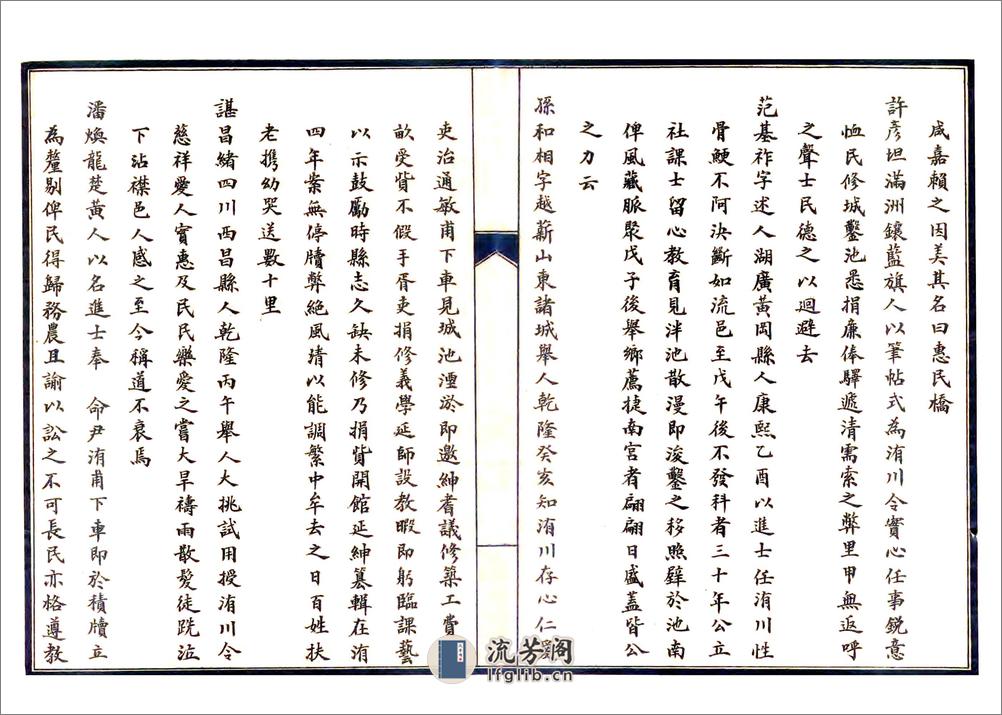 咸嘉賴之因美其名曰惠民橋
許彥坦滿洲鑲藍旗人以筆帖式為洧川令實心任事銳意
恤民修城鑿池悉捐廉俸驛遞清需索之弊里甲無返呼
之聲士民德之以迴避去
范基祚字述人湖廣黃岡縣人康熙乙酉以進士任洧川性
骨鯁不阿決斷如流邑至戊午後不發科者三十年公立
社課士留心教育見泮池散漫即浚鑿之移照壁於池南
俾風藏脈聚戊子後舉鄉薦捷南宮者翩翩日盛蓋皆公
之力云
孫和相字越薪山東諸城舉人乾隆癸亥知洧川存心仁愛
吏治通敏甫下車見城池湮淤即邀紳耆議修築工費
畝受貲不假手胥吏捐修義學延師設教暇即躬臨課藝
以示鼓勵時縣志久缺未修乃捐貲開館延紳纂輯在洧
四年案無停牘弊絕風清以能調繁中牟去之日百姓扶
老攜幼哭送數十里
諶昌緒四川西昌縣人乾隆丙午舉人大挑試用授洧川令
慈祥愛人實惠及民民樂愛之嘗大旱禱雨散髮徒跣泣
下沾襟邑人感之至今稱道不衰焉
潘煥龍楚黃人以名進士奉 命尹洧甫下車即於積牘立
為釐剔俾民得歸務農且諭以訟之不可長民亦格遵教
流芳閣
lfglib.cn